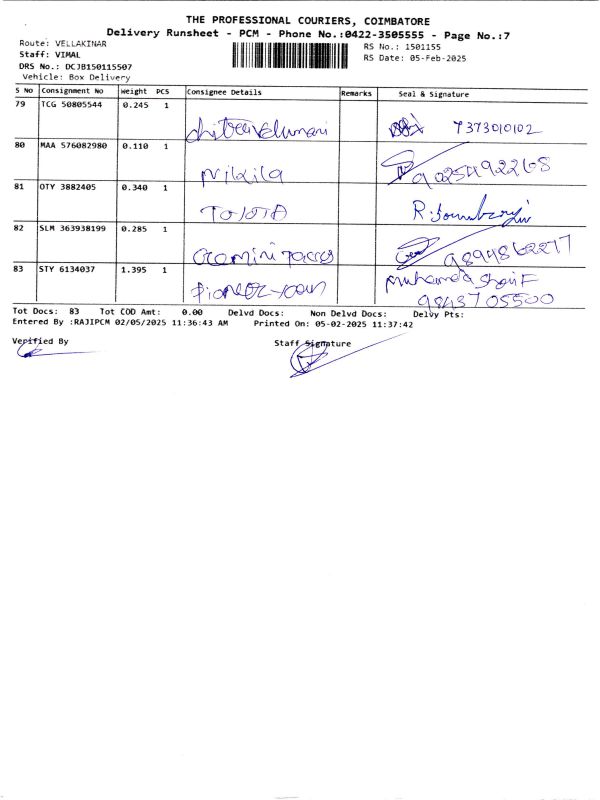 THE PROFESSIONAL COURIERS, COIMBATORE
Delivery Runsheet - PCM - Phone No.:0422-3505555 - Page No.:7
Route: VELLAKINAR
Staff: VIMAL
DRS No.: DCJB150115507
Vehicle: Box Delivery
RS No.: 1501155
RS Date: 05-Feb-2025
S No Consignment No Weight PCS Consignee Details Remarks Seal & Signature
79 TCG 50805544 0.245 1 7373010102
80 MAA 576082980 0.110 1 Nikila 9025492268
81 OTY 3882405 0.340 1 TOYOTA
82 SLM 363938199 0.285 1 9894862277
83 STY 6134037 1.395 1 9843705500
Tot Docs: 83 Tot COD Amt: 0.00 Delvd Docs: Non Delvd Docs: Delvy Pts:
Entered By :RAJIPCM 02/05/2025 11:36:43 AM Printed On: 05-02-2025 11:37:42
Verified By Staff Signature